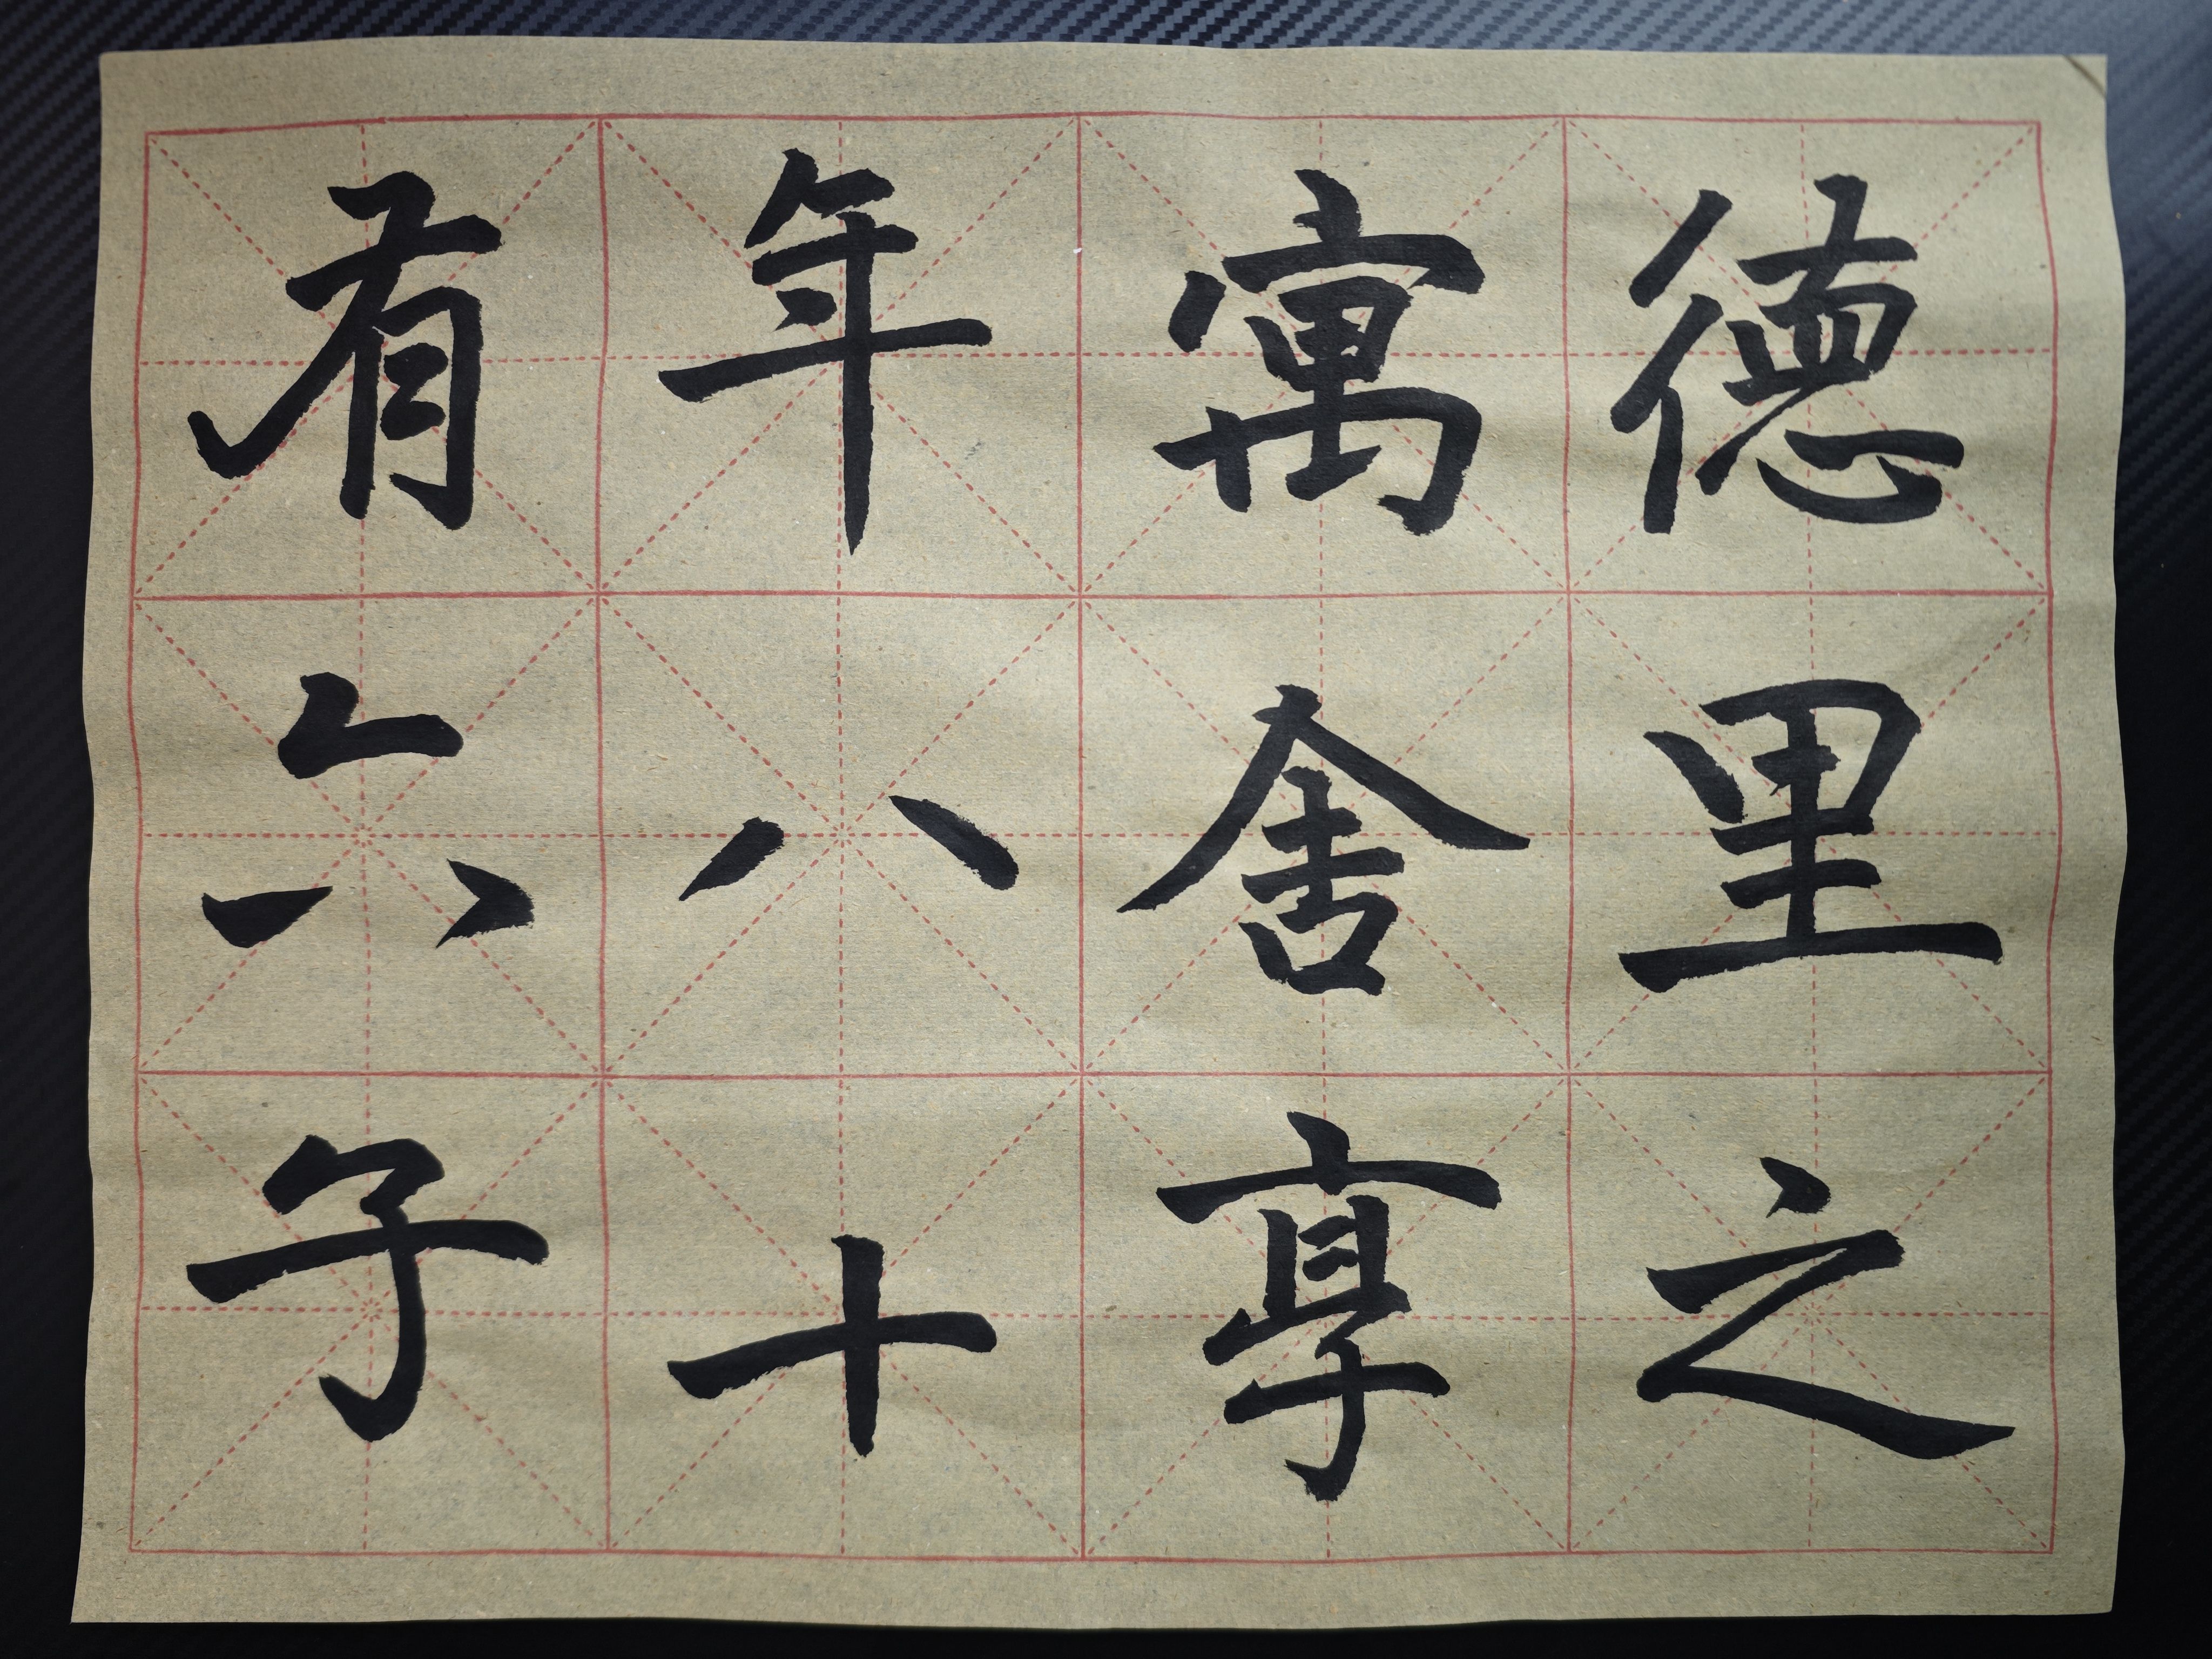 德里之
寓舍享
年八十
有六子